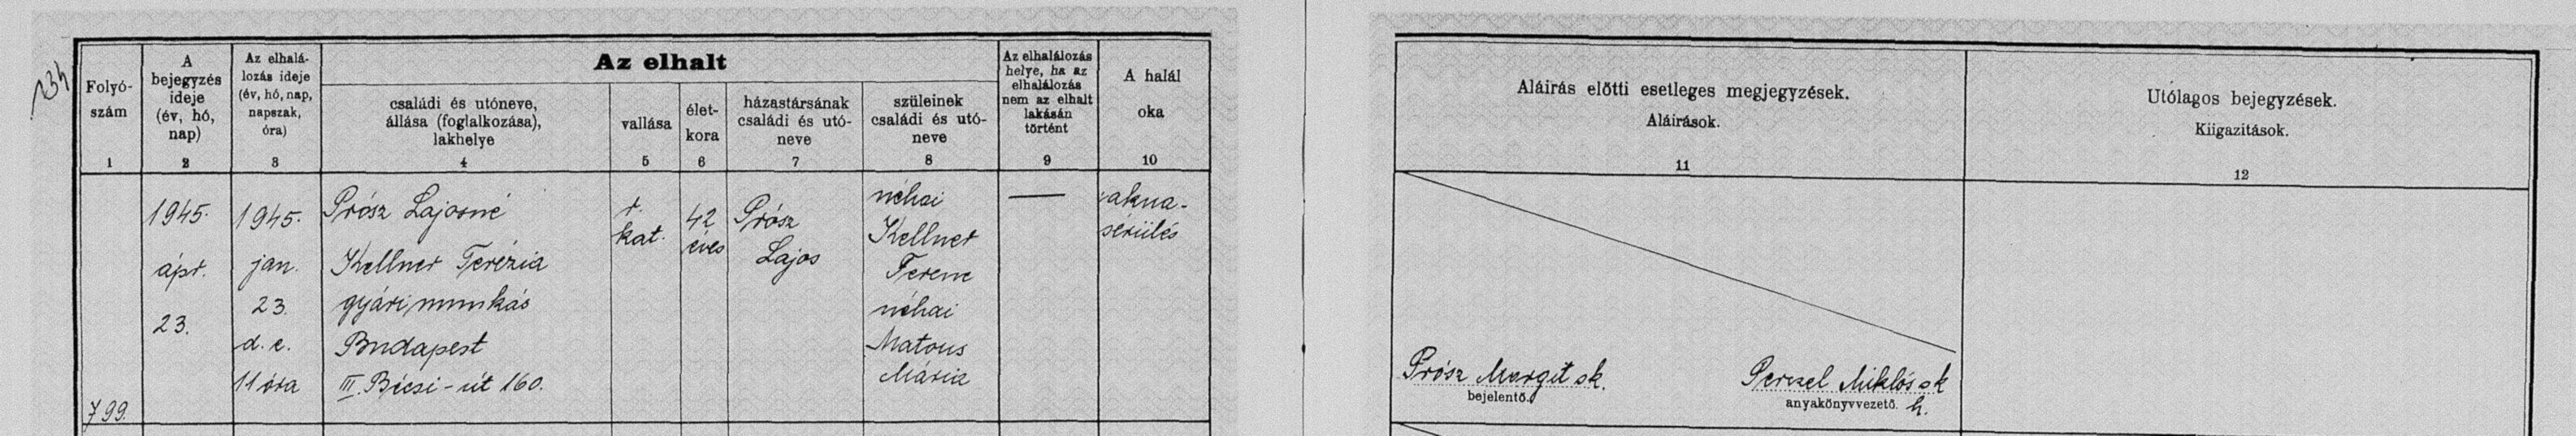 234
Folyó-
szám
1
A
bejegyzés
ideje
(év, hó,
nap)
2
Az elhalá-
lozás ideje
(év, hó, nap,
napszak,
óra)
3
Az elhalt
családi és utóneve,
állása (foglalkozása),
lakhelye
4
vallása
5
élet-
kora
6
házastársának
családi és utó-
neve
7
szüleinek
családi és utó-
neve
8
Az elhalálozás
helye, ha az
elhalálozás
nem az elhalt
lakásán
történt
9
A halál
oka
10
Aláírás előtti esetleges megjegyzések.
Aláírások.
11
Utólagos bejegyzések.
Kiigazítások.
12
799.
1945.
ápr.
23.
1945.
jan.
23.
d. e.
11 óra
Prósz Lajosné
Kellner Terézia
gyári munkás
Budapest
III. Bécsi-út 160.
r.
kat.
42
éves
Prósz
Lajos
néhai
Kellner
Ferenc
néhai
Matous
Mária
—
akna-
sérülés
Prósz Margit sk.
bejelentő.
Perczel Miklós sk
anyakönyvvezető. h.